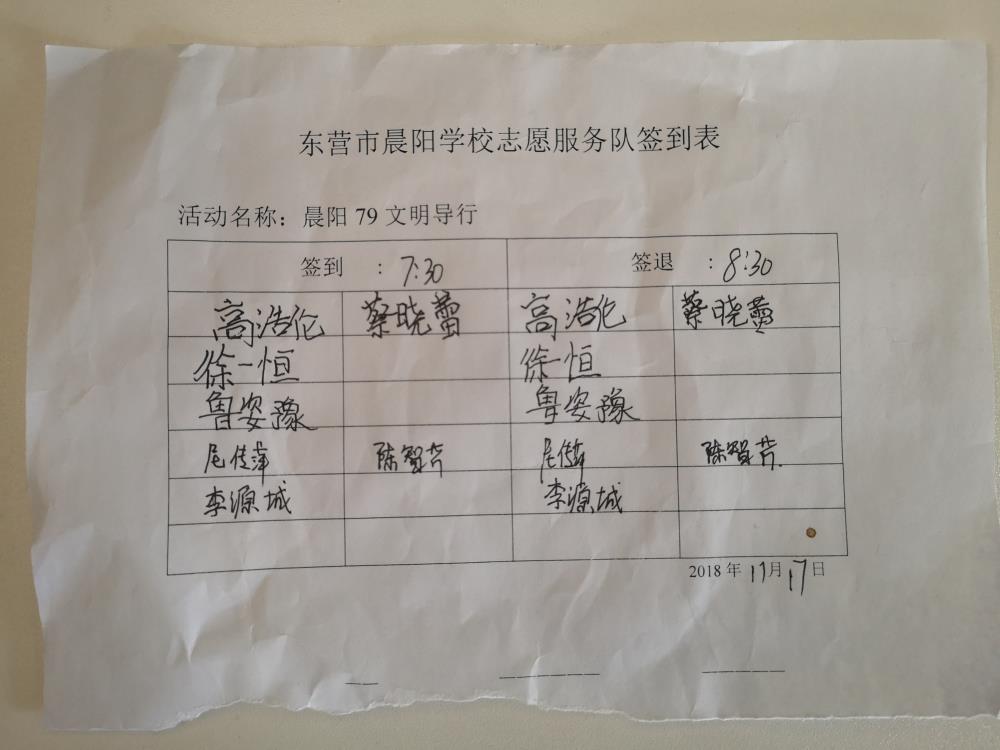 东营市晨阳学校志愿服务队签到表
活动名称：晨阳 79 文明导行
签到 ：7:30 签退 ：8:30
高浩伦 蔡晓蕾 高浩伦 蔡晓蕾
徐一恒 徐一恒
鲁姿豫 鲁姿豫
陈智芹 陈智芹
李源城 李源城
2018 年 11月 17日